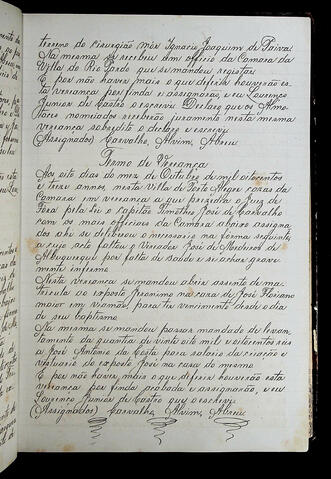 terreno do cirurgião mór Ignacio Joaquim de Paiva.
Na mesma se recebeu um officio da Camara da
Villa do Rio Pardo que se mandou registar.
E por não haver mais o que deferir houverão es-
ta vereança por finda e assignarão, e eu Lourenço
Junior de Castro o escrevi. Declaro que os Almo-
taces nomeados receberão juramento nesta mesma
vereança sobredito o declaro e escrevi
(Assignados) Carvalho, Alvim, Abreu
Termo de Vereança
Aos oito dias do mez de Outubro de mil oitocentos
e treze annos, nesta Villa de Porto Alegre casas da
Camara em vereança a que presidia o Juiz de
Fóra pela Lei o Capitão Timotheo José de Carvalho
com os mais officiaes da Camara abaixo assigna-
dos ahi se deliberou o necessario na forma seguinte,
a cujo acto faltou o Vereador José de Medeiros de
Albuquerque por falta de saude e se achar grave-
mente infermo.
Nesta vereança se mandou abrir assento de ma-
tricula ao exposto Jeronimo na casa de José Floriano
maior em Viamão, para ter vencimento desde o dia
de seu baptismo.
Na mesma se mandou passar mandado de levan-
tamento da quantia de vinte oito mil e oitocentos reis
a José Antonio da Costa para salario da criação e
vestuario do exposto José na casa do mesmo.
E por não haver mais o que deferir houverão esta
vereança por finda acabada e assignarão, e eu
Lourenço Junior de Castro que o escrevi
(Assignados) Carvalho, Alvim, Abreu